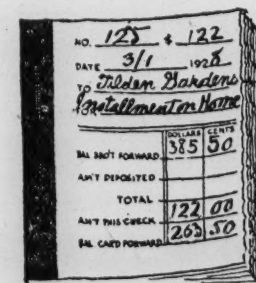 NO. 125 $ 122
DATE 3/1 1928
TO Tilden Gardens
Installment on Home
DOLLARS CENTS
BAL BRO'T FORWARD 385 50
AM'T DEPOSITED
TOTAL
AM'T THIS CHECK 122 00
BAL CARD FORWARD 263 50